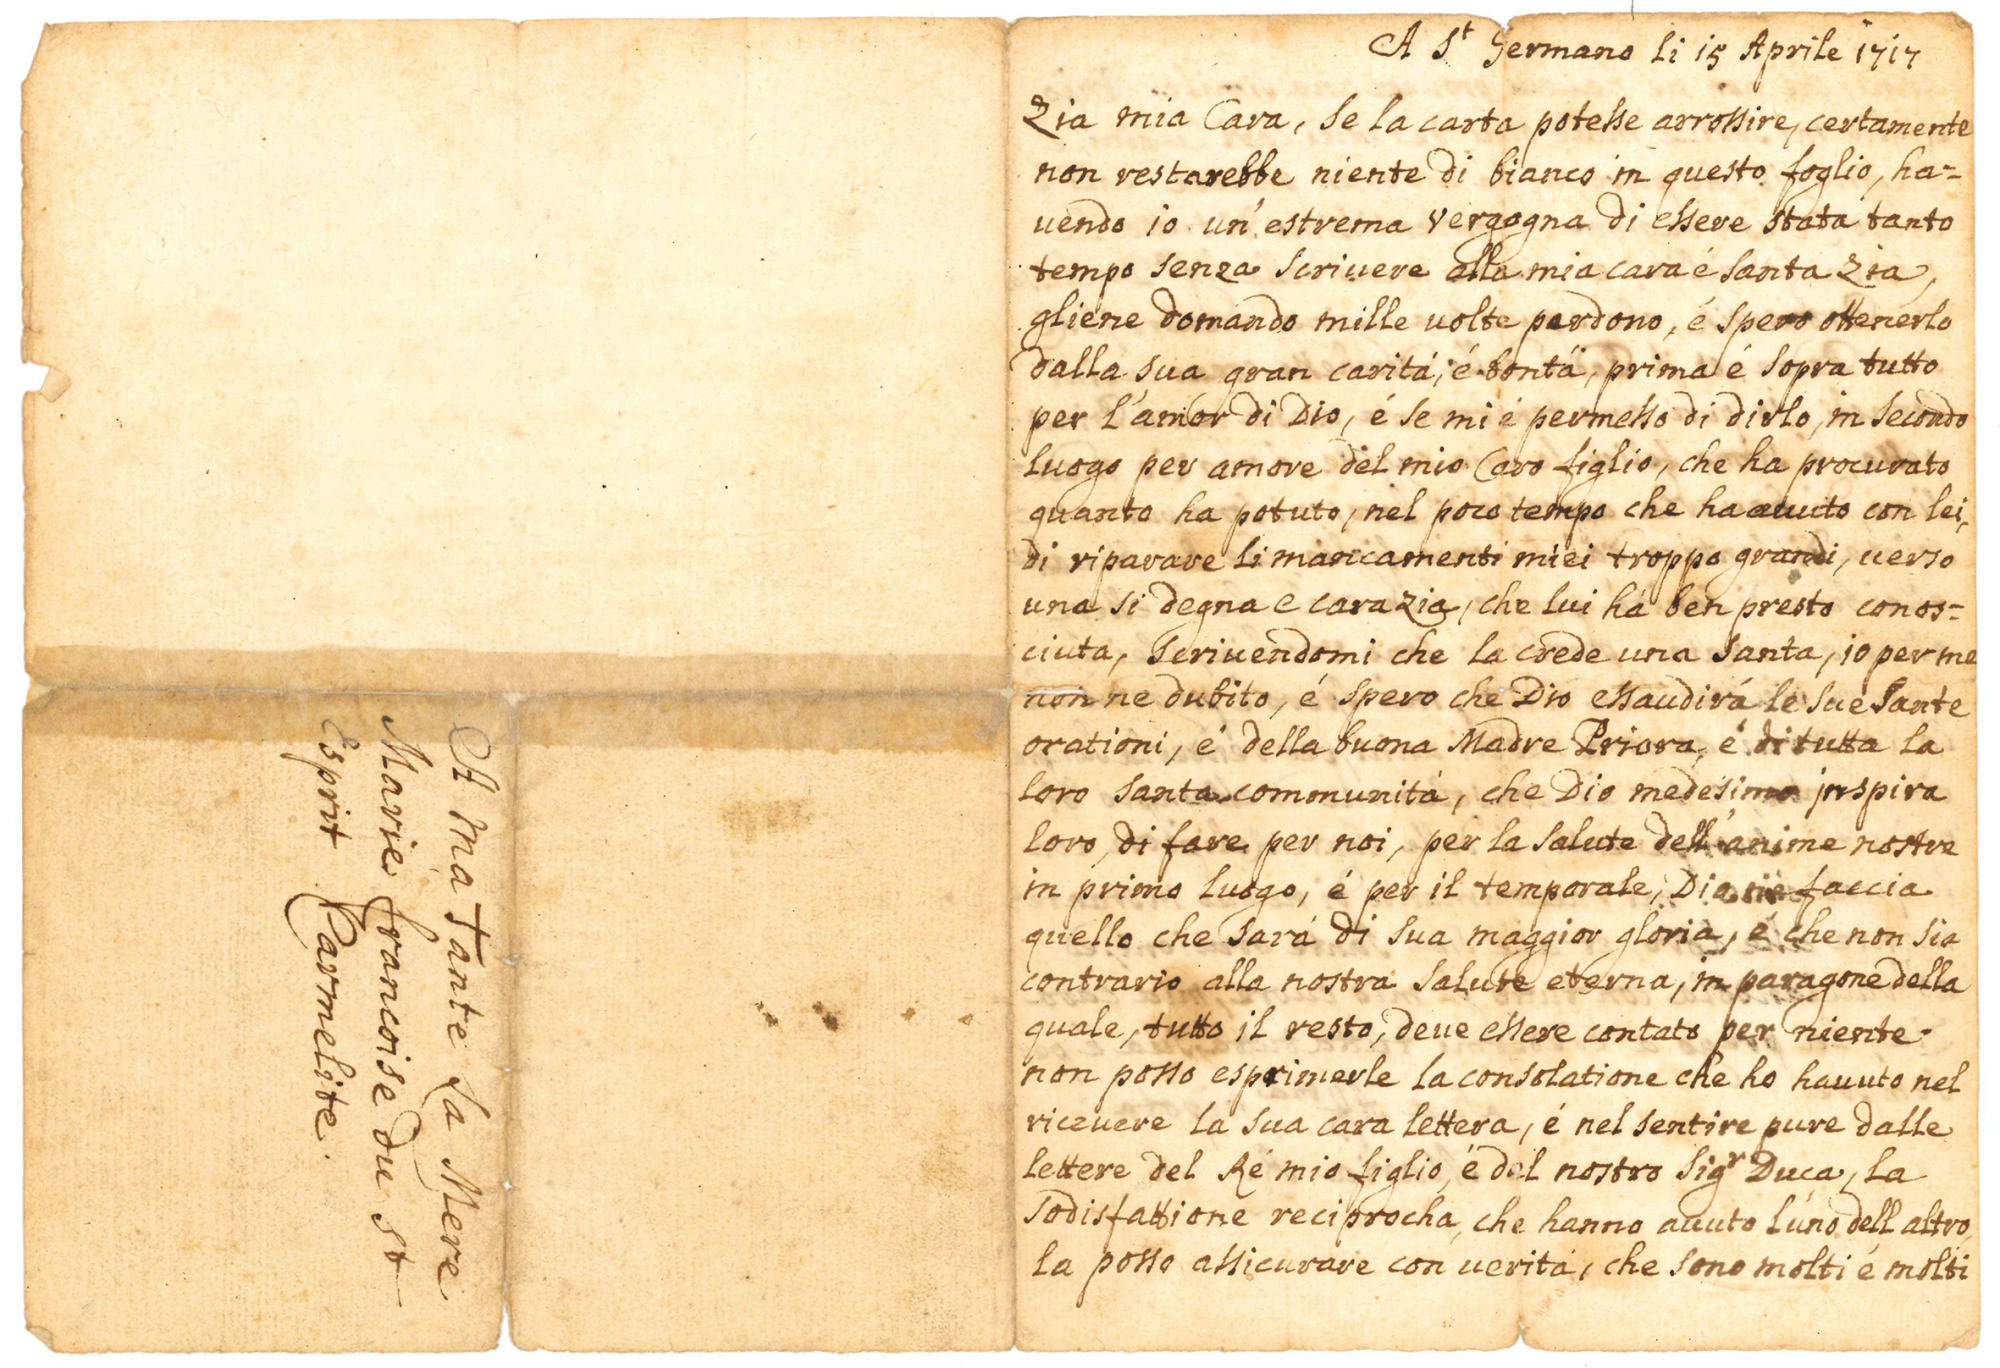 A St Germano li 15 Aprile 1717
Zia mia Cara, se la carta potesse arrossire, certamente
non restarebbe niente di bianco in questo foglio, ha=
uendo io un' estrema vergogna di essere stata tanto
tempo senza scriuere alla mia cara é santa Zia,
gliene domando mille uolte perdono, é spero ottenerlo
dalla sua gran caritá, é bontá, prima é sopra tutto
per l'amor di Dio, é se mi é permesso di dirlo, in secondo
luogo per amore del mio Caro figlio, che ha procurato
quanto ha potuto, nel poco tempo che ha auuto con lei,
di riparare li mancamenti miei troppo grandi, uerso
una si degna e cara zia, che lui há ben presto conos=
ciuta, scriuendomi che la crede una santa, io per me
non ne dubito, é spero che Dio essaudirá le sue sante
orationi, é della buona Madre Priora, é di tutta la
loro santa communitá, che Dio medesimo inspira
loro, di fare per noi, per la salute dell'anime nostre
in primo luogo, é per il temporale, Dio ne faccia
quello che sará di sua maggior gloria, é che non sia
contrario alla nostra salute eterna, in paragone della
quale, tutto il resto, deue essere contato per niente.
non posso esprimerle la consolatione che ho hauuto nel
riceuere la sua cara lettera, é nel sentire pure dalle
lettere del Ré mio figlio, é del nostro Sigr Duca, la
sodisfattione reciprocha, che hanno auuto l'uno dell altro,
la posso assicurare con ueritá, che sono molti é molti
A ma Tante La Mere
Marie francoise du St
Esprit Carmelite.